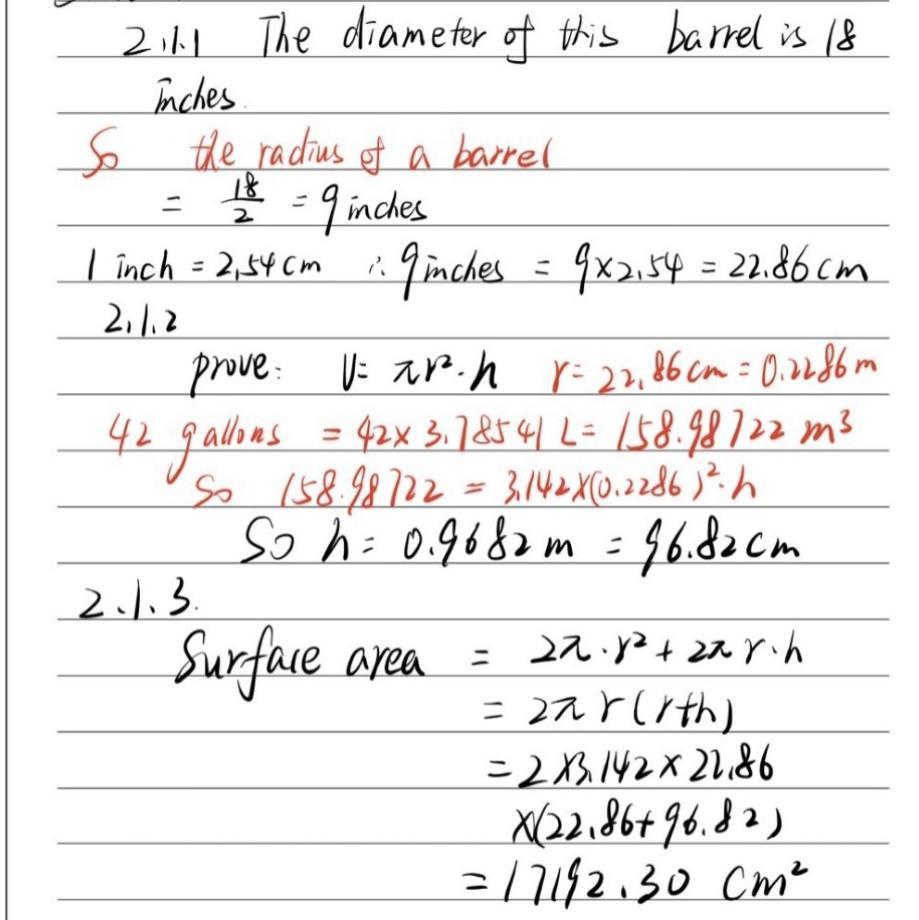 2.1.1 The diameter of this barrel is 18
inches.
So the radius of a barrel
= 18/2 = 9 inches
1 inch = 2,54 cm ∴ 9 inches = 9×2.54 = 22.86 cm
2.1.2
prove: V= πr²·h r= 22.86 cm = 0.2286 m
42 gallons = 42× 3.78541 L = 158.98722 m³
So 158.98722 = 3.142×(0.2286)²·h
So h= 0.9682 m = 96.82 cm
2.1.3.
Surface area = 2π·r² + 2π r·h
= 2π r(r+h)
= 2×3.142 × 22.86
×(22.86+96.82)
= 17192.30 cm²